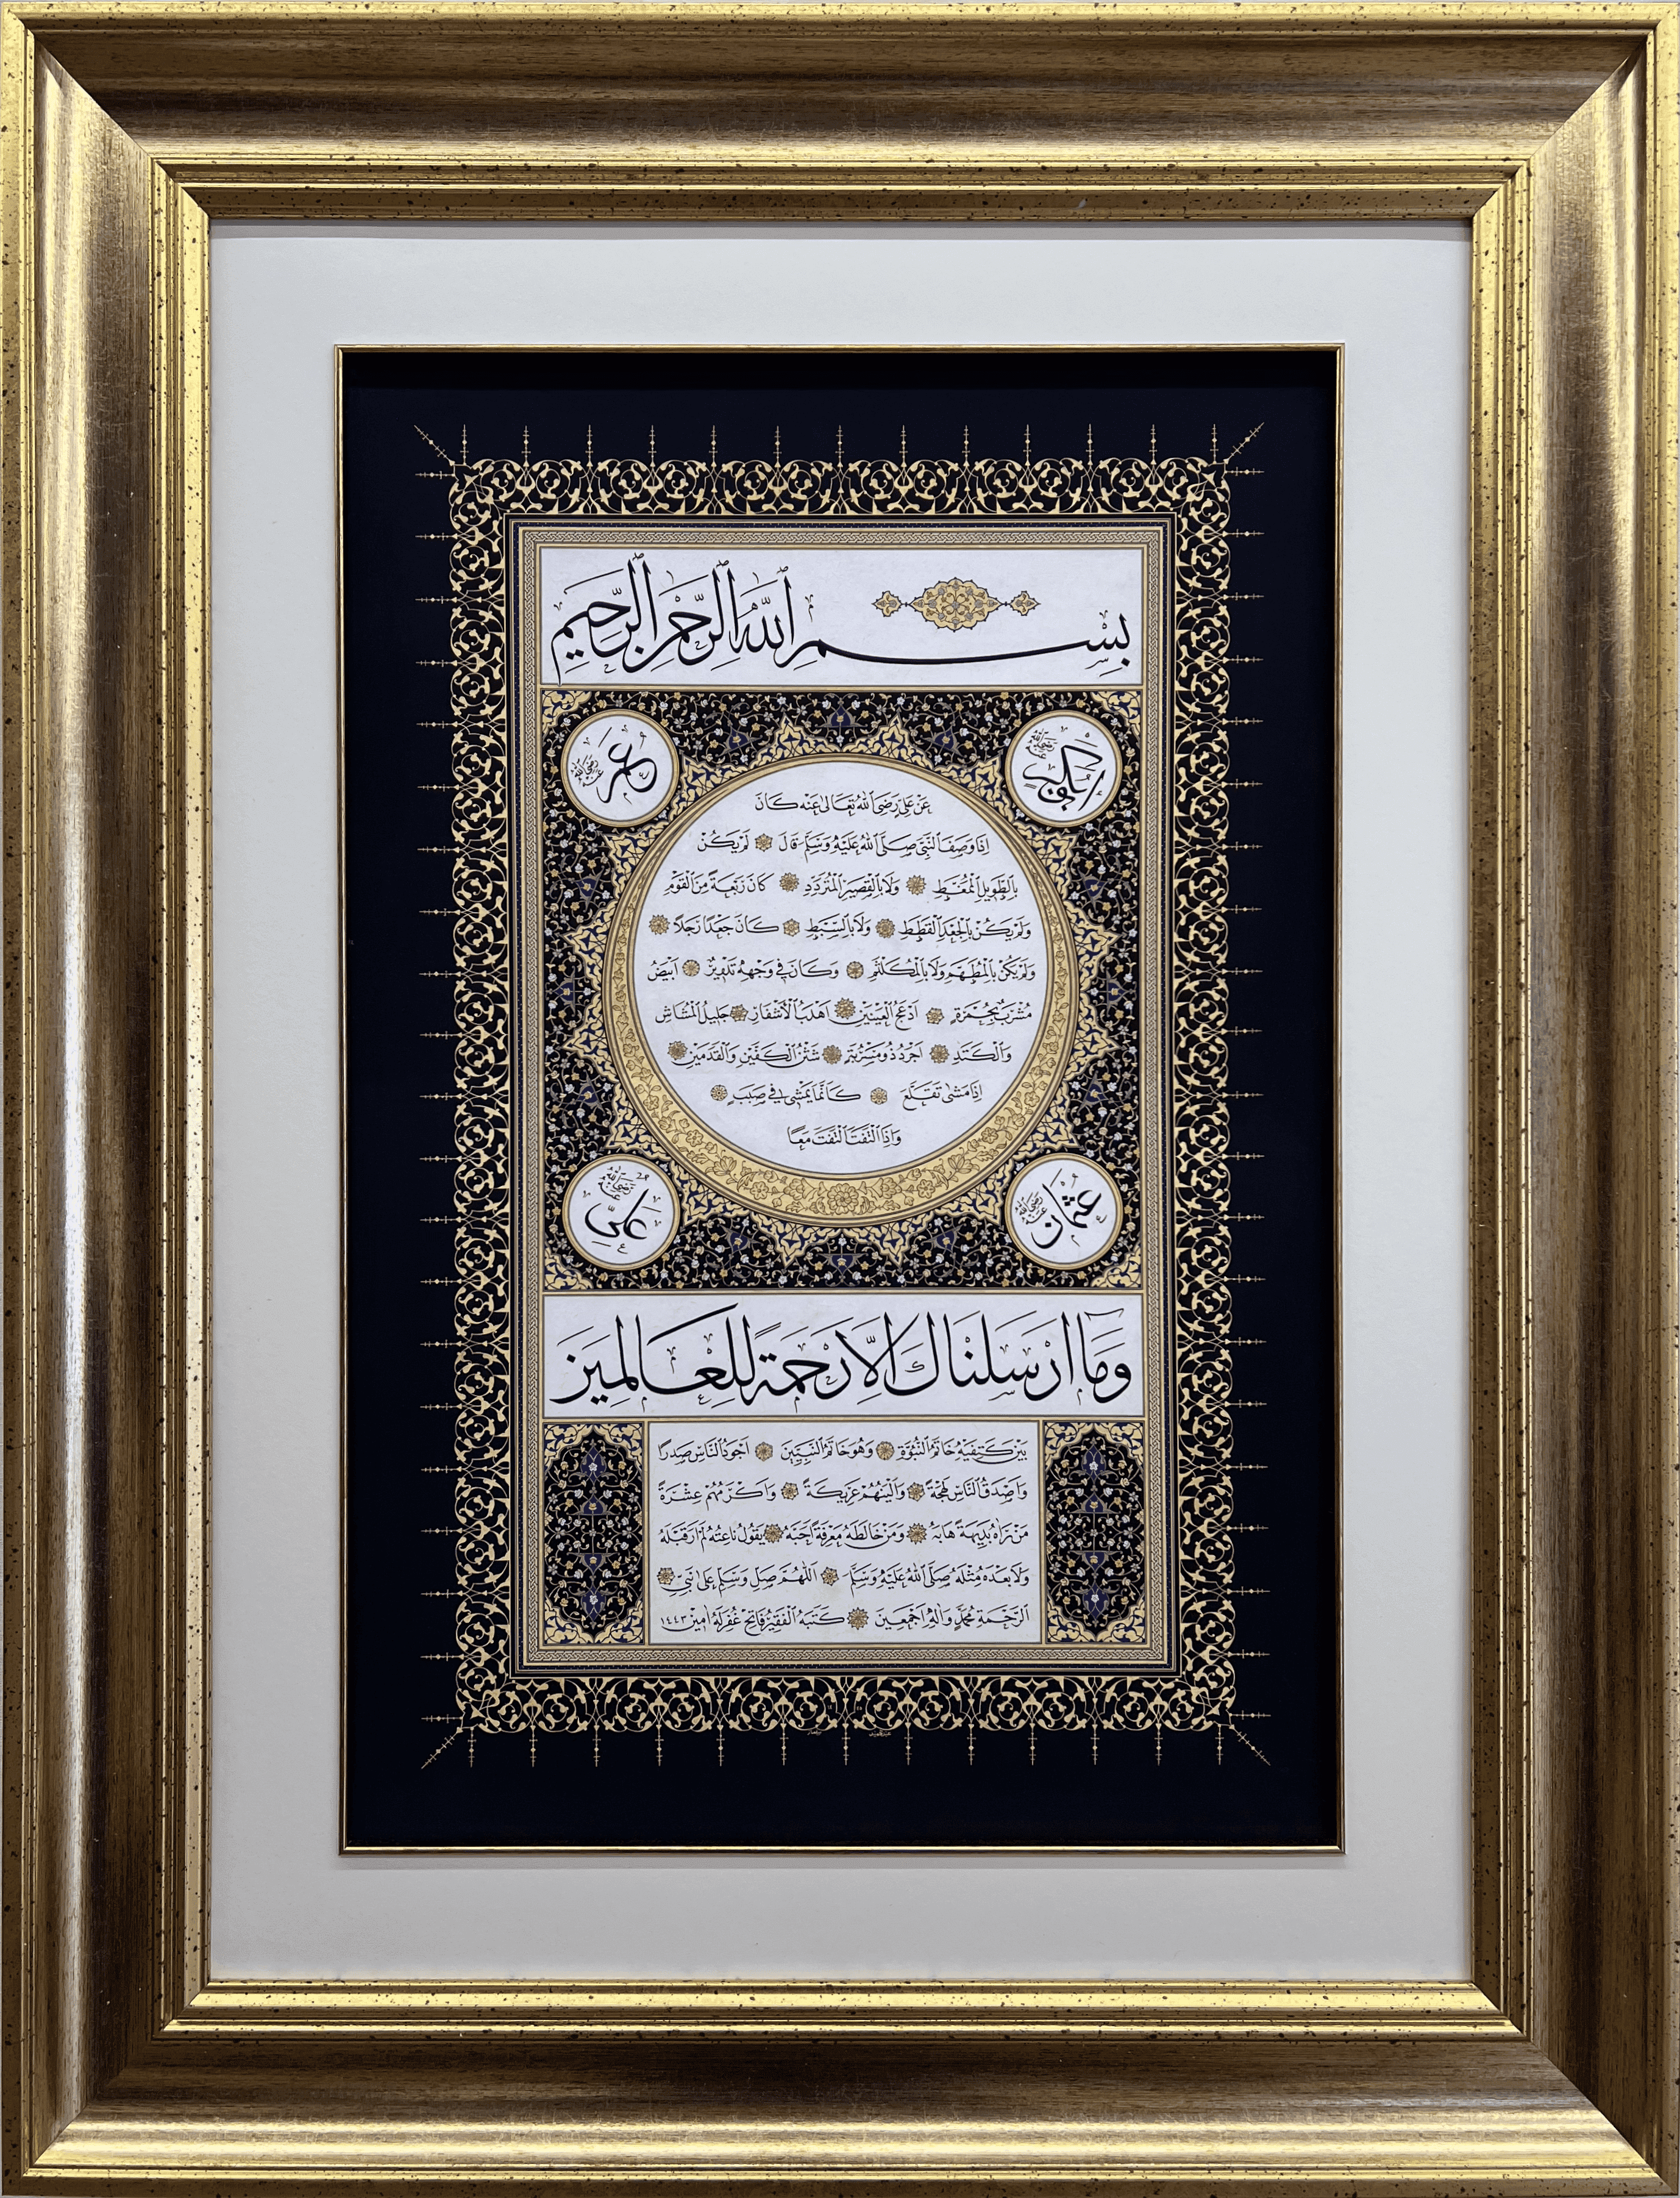 بِسْمِ اللّٰهِ الرَّحْمٰنِ الرَّحِيمِ
ابوبكر رضي الله عنه
عمر رضي الله عنه
عَنْ عَلِيٍّ رَضِيَ اللّٰهُ تَعَالٰى عَنْهُ كَانَ
اِذَا وَصَفَ النَّبِيَّ صَلَّى اللّٰهُ عَلَيْهِ وَسَلَّمَ قَالَ لَمْ يَكُنْ
بِالطَّوِيلِ الْمُمَّغِطِ وَلَا بِالْقَصِيرِ الْمُتَرَدِّدِ كَانَ رَبْعَةً مِنَ الْقَوْمِ
وَلَمْ يَكُنْ بِالْجَعْدِ الْقَطَطِ وَلَا بِالسَّبِطِ كَانَ جَعْدًا رَجِلًا
وَلَمْ يَكُنْ بِالْمُطَهَّمِ وَلَا بِالْمُكَلْثَمِ وَكَانَ فِي وَجْهِهِ تَدْوِيرٌ اَبْيَضُ
مُشْرَبٌ بِحُمْرَةٍ اَدْعَجُ الْعَيْنَيْنِ اَهْدَبُ الْاَشْفَارِ جَلِيلُ الْمُشَاشِ
وَالْكَتَدِ اَجْرَدُ ذُو مَسْرُبَةٍ شَثْنُ الْكَفَّيْنِ وَالْقَدَمَيْنِ
اِذَا مَشٰى تَقَلَّعَ كَاَنَّمَا يَمْشِي فِي صَبَبٍ
وَاِذَا الْتَفَتَ الْتَفَتَ مَعًا
عثمان رضي الله عنه
علي رضي الله عنه
وَمَا اَرْسَلْنَاكَ اِلَّا رَحْمَةً لِلْعَالَمِينَ
بَيْنَ كَتِفَيْهِ خَاتَمُ النُّبُوَّةِ وَهُوَ خَاتَمُ النَّبِيِّينَ اَجْوَدُ النَّاسِ صَدْرًا
وَاَصْدَقُ النَّاسِ لَهْجَةً وَاَلْيَنُهُمْ عَرِيكَةً وَاَكْرَمُهُمْ عِشْرَةً
مَنْ رَاٰهُ بَدِيهَةً هَابَهُ وَمَنْ خَالَطَهُ مَعْرِفَةً اَحَبَّهُ يَقُولُ نَاعِتُهُ لَمْ اَرَ قَبْلَهُ
وَلَا بَعْدَهُ مِثْلَهُ صَلَّى اللّٰهُ عَلَيْهِ وَسَلَّمَ اَللّٰهُمَّ صَلِّ وَسَلِّمْ عَلٰى نَبِيِّ
الرَّحْمَةِ مُحَمَّدٍ وَاٰلِهِ اَجْمَعِينَ كَتَبَهُ الْفَقِيرُ فَاتِحْ غُفِرَ لَهُ اٰمِين ١٤٤٣